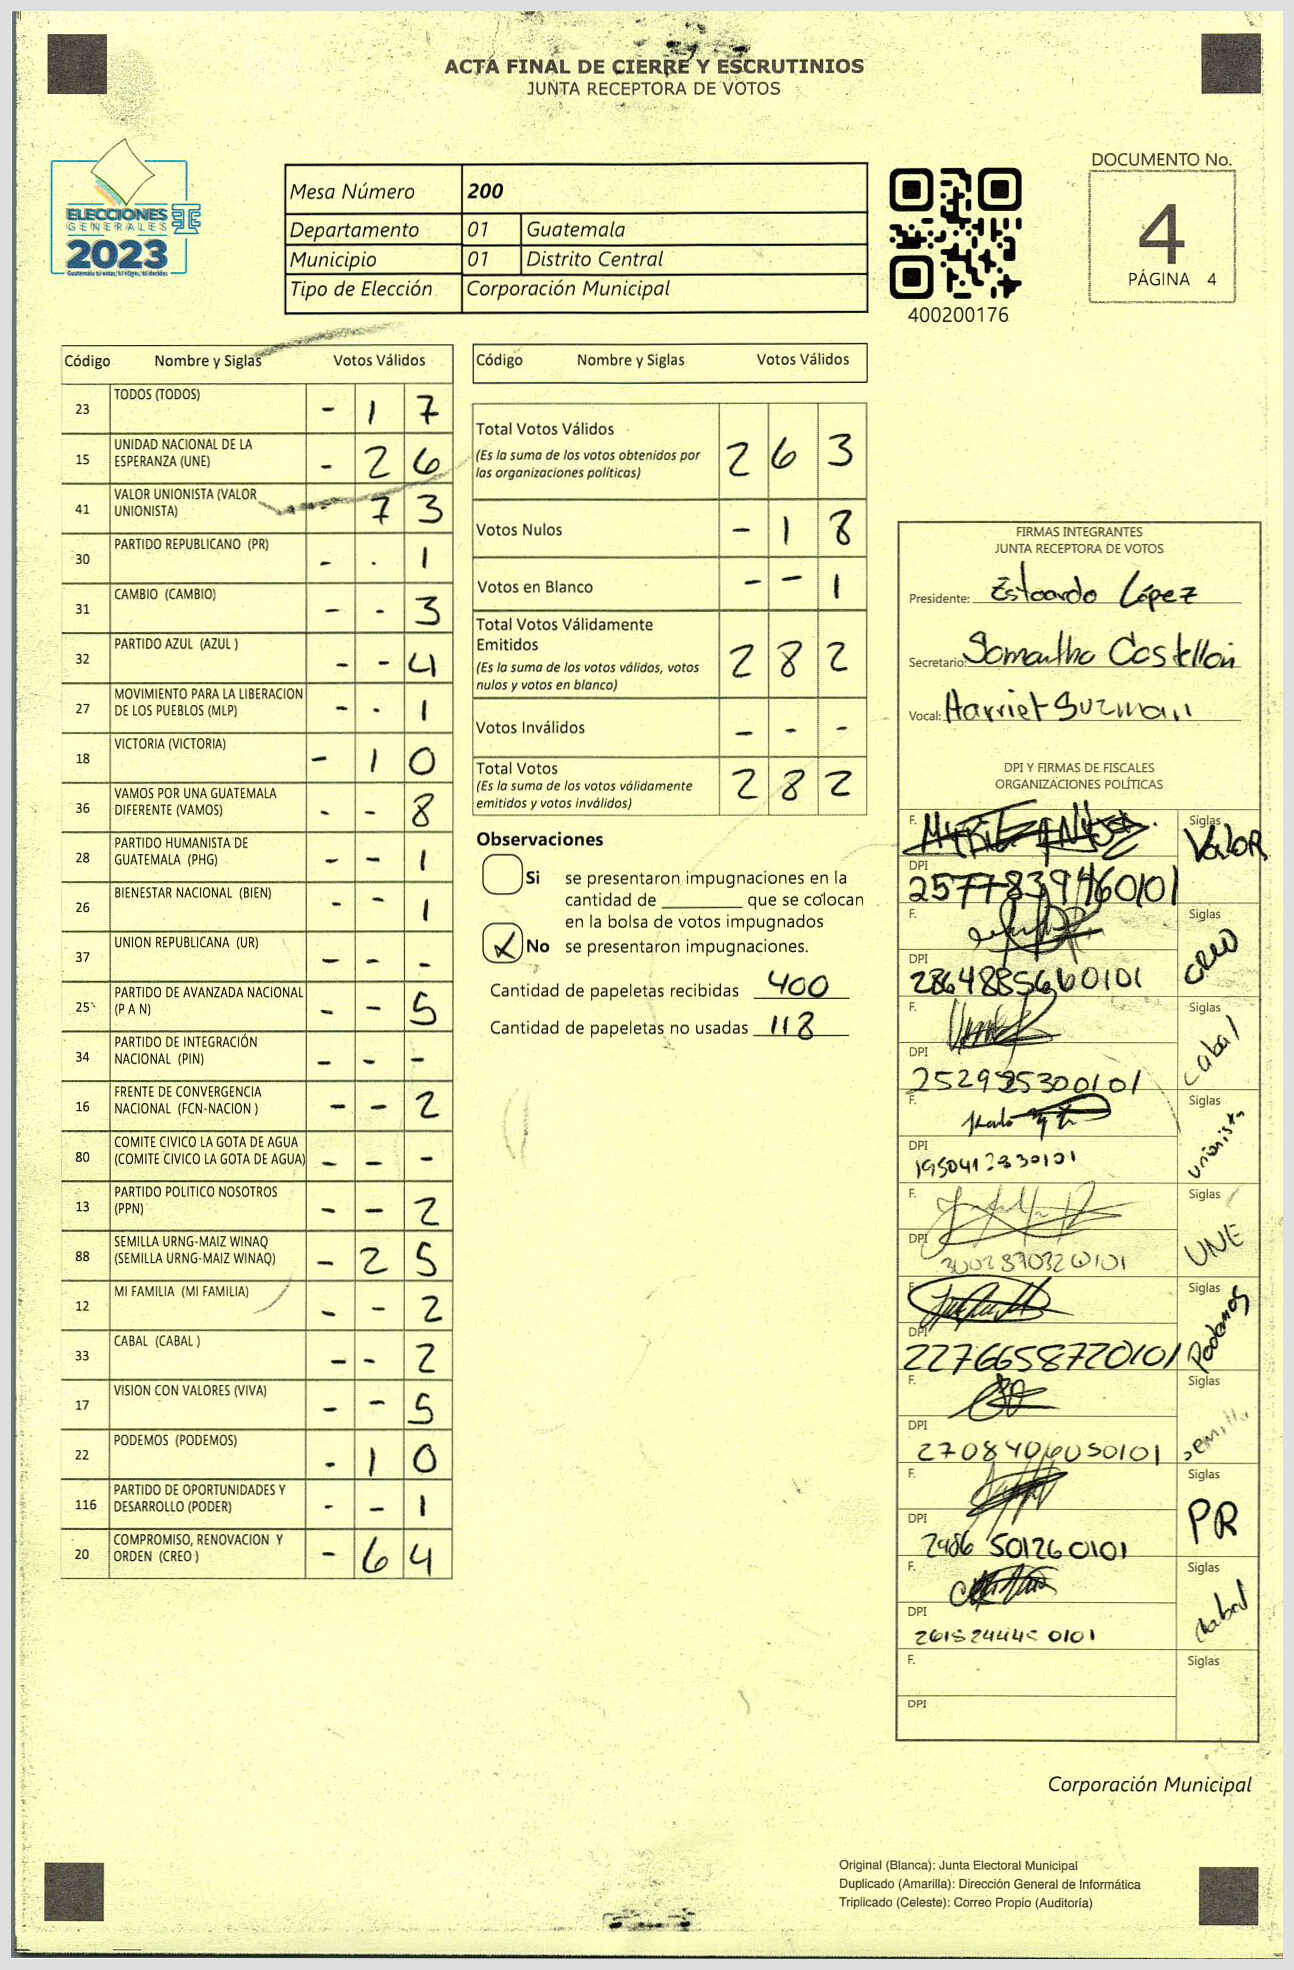 ACTA FINAL DE CIERRE Y ESCRUTINIOS
JUNTA RECEPTORA DE VOTOS
ELECCIONES
GENERALES
2023
Guatemala tú votas, tú eliges, tú decides
Mesa Número 200
Departamento 01 Guatemala
Municipio 01 Distrito Central
Tipo de Elección Corporación Municipal
400200176
DOCUMENTO No.
4
PÁGINA 4
Código Nombre y Siglas Votos Válidos
23 TODOS (TODOS) - 1 7
15 UNIDAD NACIONAL DE LA ESPERANZA (UNE) - 2 6
41 VALOR UNIONISTA (VALOR UNIONISTA) - 7 3
30 PARTIDO REPUBLICANO (PR) - - 1
31 CAMBIO (CAMBIO) - - 3
32 PARTIDO AZUL (AZUL ) - - 4
27 MOVIMIENTO PARA LA LIBERACION DE LOS PUEBLOS (MLP) - - 1
18 VICTORIA (VICTORIA) - 1 0
36 VAMOS POR UNA GUATEMALA DIFERENTE (VAMOS) - - 8
28 PARTIDO HUMANISTA DE GUATEMALA (PHG) - - 1
26 BIENESTAR NACIONAL (BIEN) - - 1
37 UNION REPUBLICANA (UR) - - -
25 PARTIDO DE AVANZADA NACIONAL (P A N) - - 5
34 PARTIDO DE INTEGRACIÓN NACIONAL (PIN) - - -
16 FRENTE DE CONVERGENCIA NACIONAL (FCN-NACION ) - - 2
80 COMITE CIVICO LA GOTA DE AGUA (COMITE CIVICO LA GOTA DE AGUA) - - -
13 PARTIDO POLITICO NOSOTROS (PPN) - - 2
88 SEMILLA URNG-MAIZ WINAQ (SEMILLA URNG-MAIZ WINAQ) - 2 5
12 MI FAMILIA (MI FAMILIA) - - 2
33 CABAL (CABAL ) - - 2
17 VISION CON VALORES (VIVA) - - 5
22 PODEMOS (PODEMOS) - 1 0
116 PARTIDO DE OPORTUNIDADES Y DESARROLLO (PODER) - - 1
20 COMPROMISO, RENOVACION Y ORDEN (CREO ) - 6 4
Código Nombre y Siglas Votos Válidos
Total Votos Válidos 2 6 3
(Es la suma de los votos obtenidos por
las organizaciones políticas)
Votos Nulos - 1 8
Votos en Blanco - - 1
Total Votos Válidamente
Emitidos 2 8 2
(Es la suma de los votos válidos, votos
nulos y votos en blanco)
Votos Inválidos - - -
Total Votos 2 8 2
(Es la suma de los votos válidamente
emitidos y votos inválidos)
Observaciones
Si se presentaron impugnaciones en la
cantidad de ________ que se colocan
en la bolsa de votos impugnados
No se presentaron impugnaciones.
Cantidad de papeletas recibidas 400
Cantidad de papeletas no usadas 118
FIRMAS INTEGRANTES
JUNTA RECEPTORA DE VOTOS
Presidente: Estoardo López
Secretario: Samantha Castellón
Vocal: Harriet Guzman
DPI Y FIRMAS DE FISCALES
ORGANIZACIONES POLÍTICAS
F. Siglas VALOR
DPI 2577839460101
F. Siglas CREO
DPI 2864885660101
F. Siglas Cabal
DPI 252995300101
F. Siglas Unionista
DPI 1950412330101
F. Siglas UNE
DPI 3002870320101
F. Siglas Podemos
DPI 2276658720101
F. Siglas Semilla
DPI 2708406050101
F. Siglas PR
DPI 2486 501260101
F. Siglas
DPI
F. Siglas
DPI
Corporación Municipal
Original (Blanca): Junta Electoral Municipal
Duplicado (Amarilla): Dirección General de Informática
Triplicado (Celeste): Correo Propio (Auditoría)